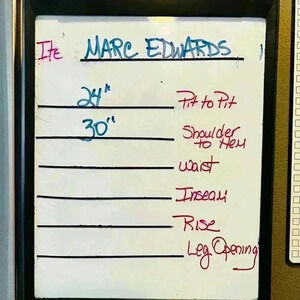 Ite MARC EDWARDS
24" Pit to Pit
30" Shoulder
to Hem
Waist
Inseam
Rise
Leg Opening